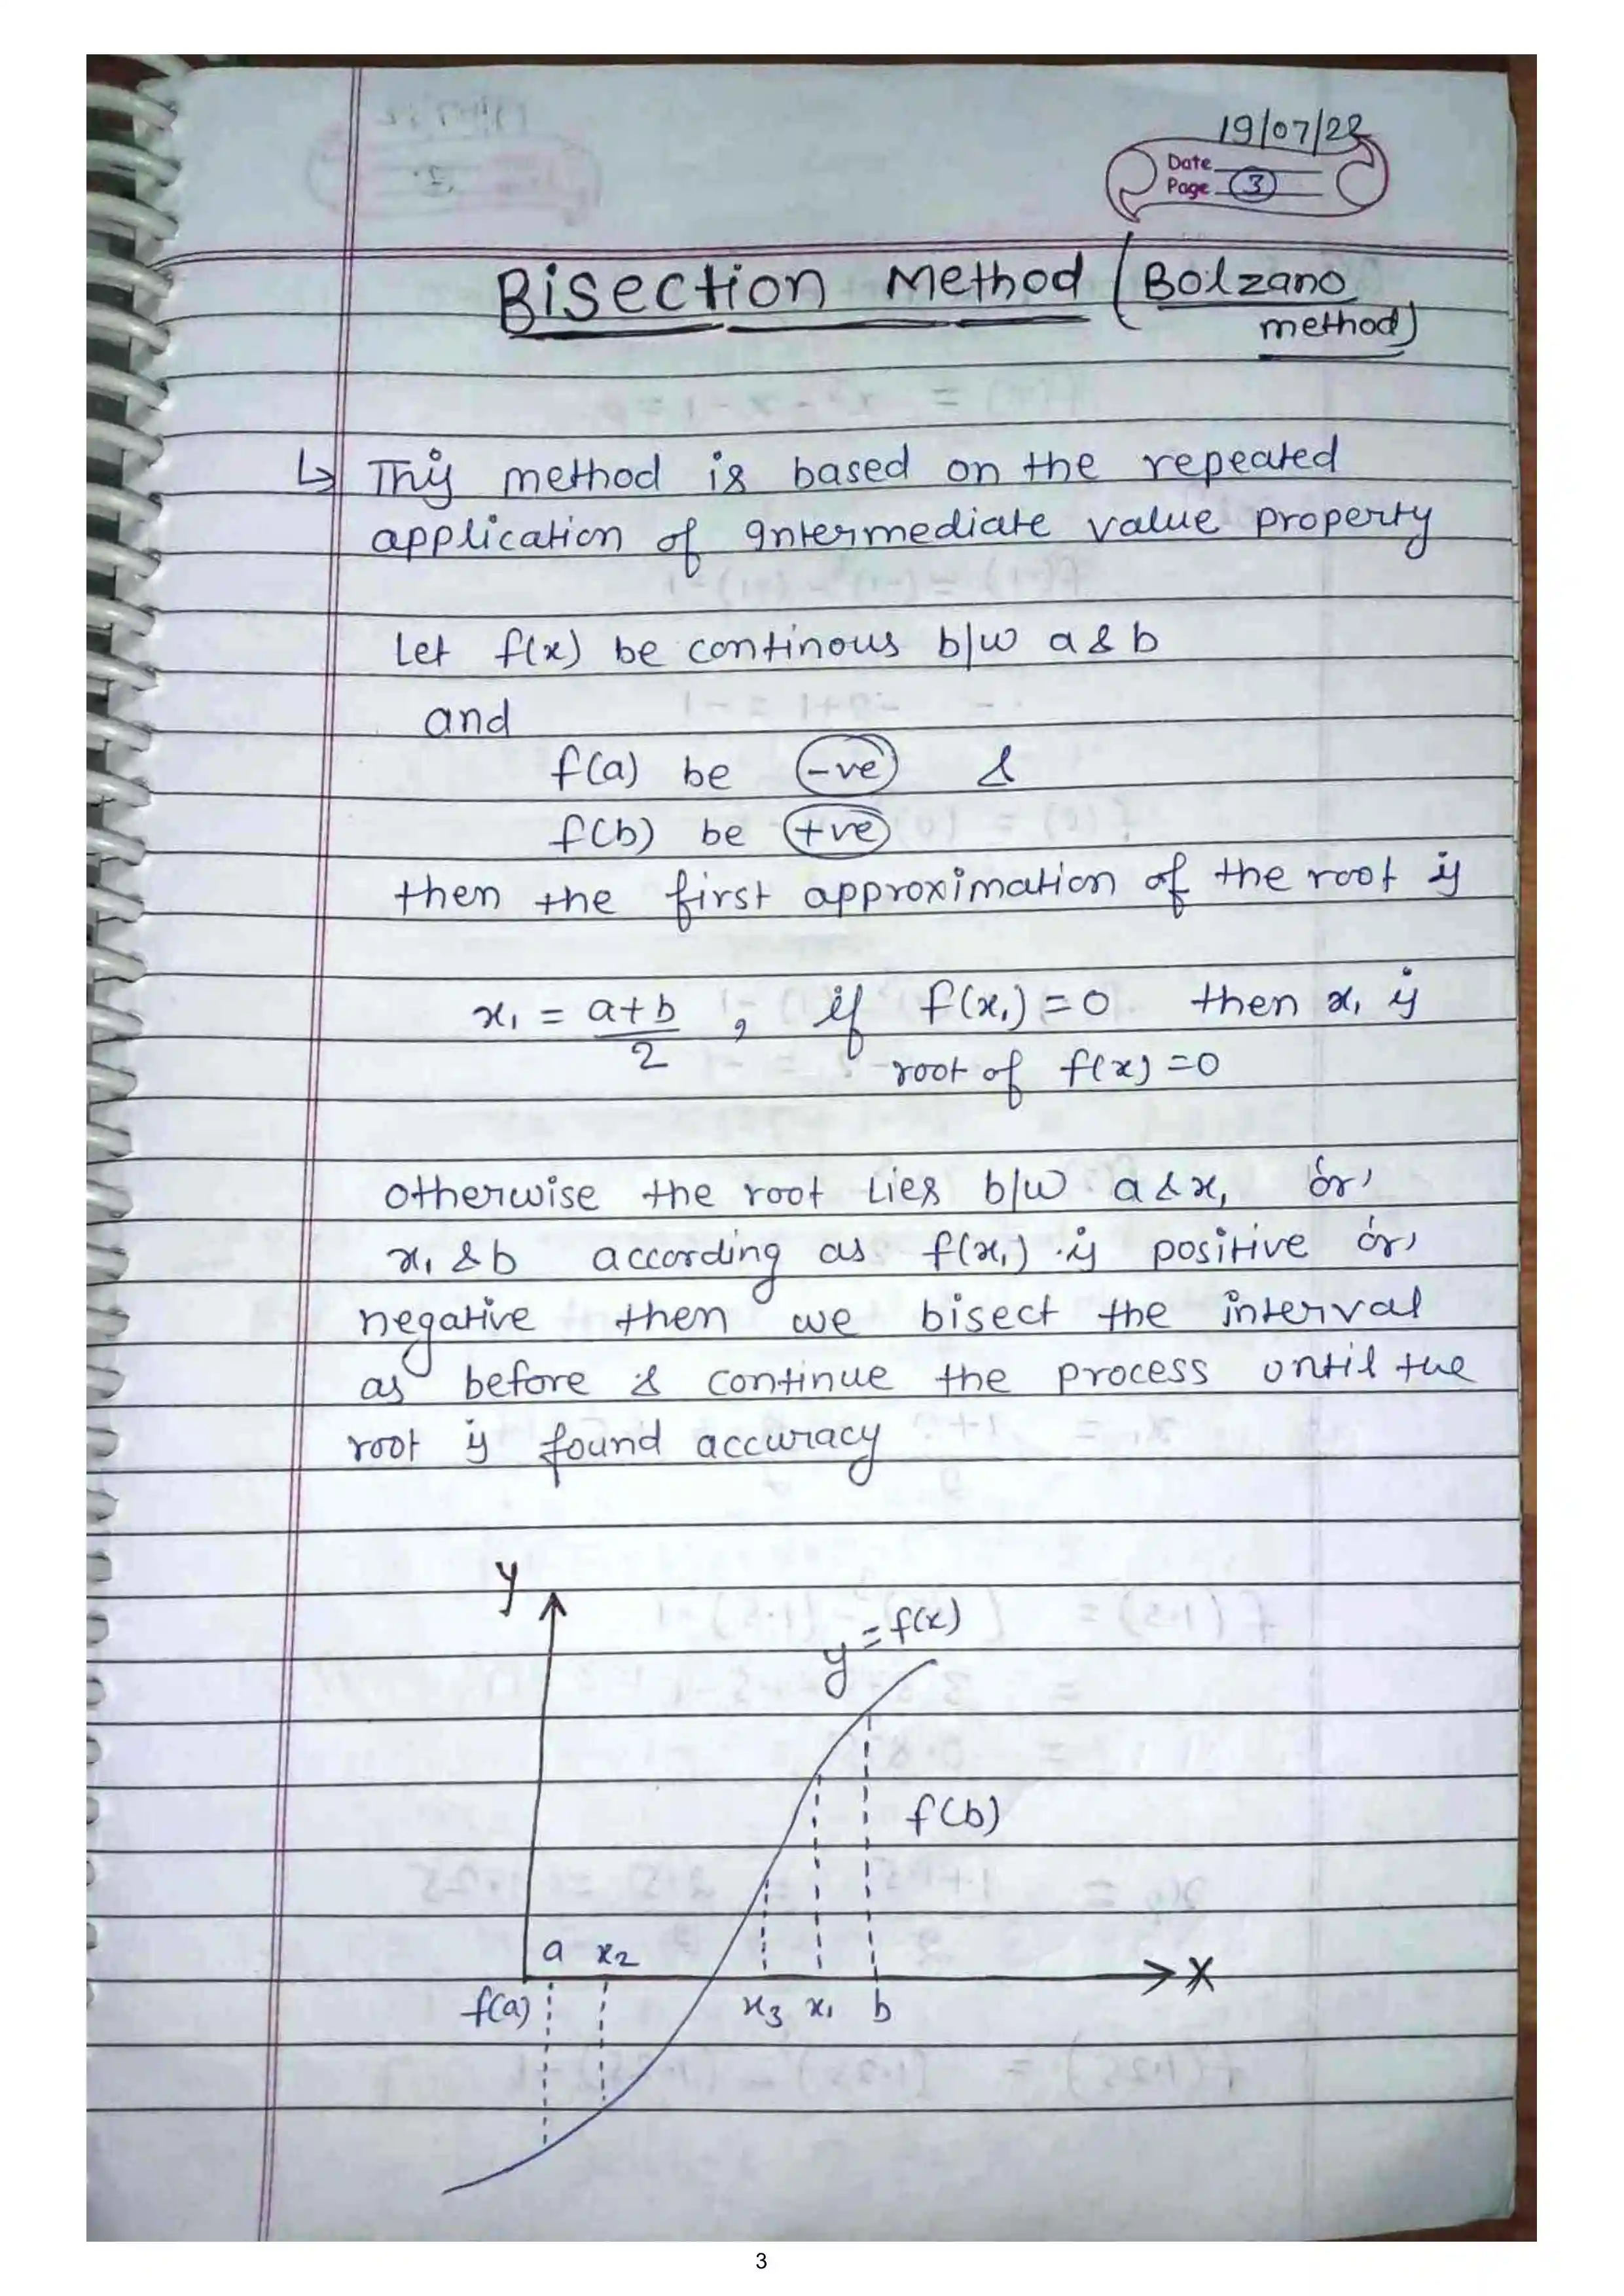 19/07/22
Date
Page 3
Bisection Method (Bolzano
method)
↳ This method is based on the repeated
application of Intermediate value property
Let f(x) be continous b/w a & b
and
f(a) be -ve &
f(b) be +ve
then the first approximation of the root is
x₁ = a+b/2 , if f(x₁) = 0 then x₁ is
root of f(x) = 0
otherwise the root lies b/w a & x₁ 'or'
x₁ & b according as f(x₁) is positive 'or'
negative then we bisect the interval
as before & continue the process until the
root is found accuracy
y
y = f(x)
f(b)
a x₂
X
f(a) x₃ x₁ b
3